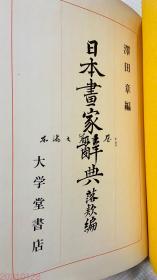 澤田章編
日本畫家辭典 落款編
大学堂書店
20210128